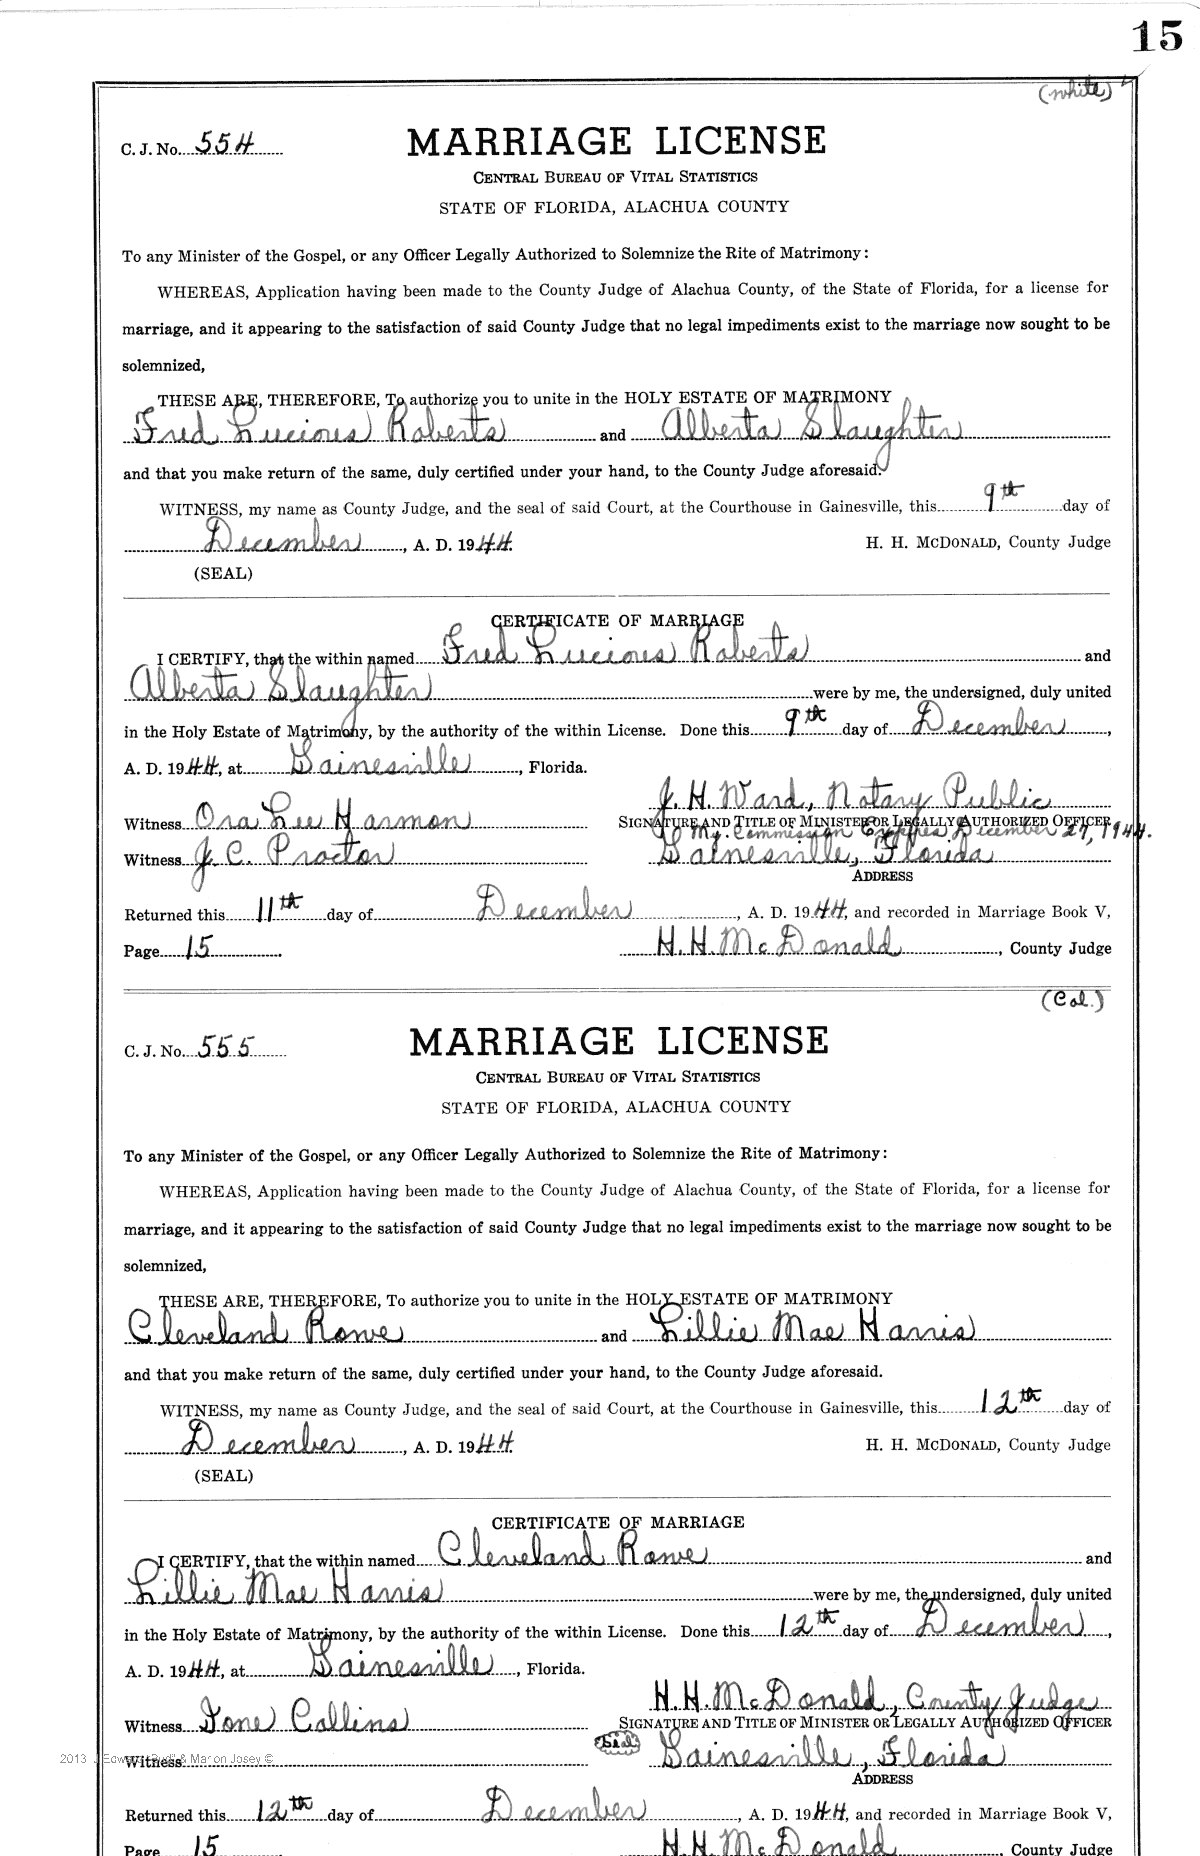 15
(white)
C. J. No. 554
MARRIAGE LICENSE
CENTRAL BUREAU OF VITAL STATISTICS
STATE OF FLORIDA, ALACHUA COUNTY
To any Minister of the Gospel, or any Officer Legally Authorized to Solemnize the Rite of Matrimony:
WHEREAS, Application having been made to the County Judge of Alachua County, of the State of Florida, for a license for
marriage, and it appearing to the satisfaction of said County Judge that no legal impediments exist to the marriage now sought to be
solemnized,
THESE ARE, THEREFORE, To authorize you to unite in the HOLY ESTATE OF MATRIMONY
Fred Lucious Roberts and Alberta Slaughter
and that you make return of the same, duly certified under your hand, to the County Judge aforesaid.
WITNESS, my name as County Judge, and the seal of said Court, at the Courthouse in Gainesville, this 9th day of
December, A. D. 1944. H. H. MCDONALD, County Judge
(SEAL)
CERTIFICATE OF MARRIAGE
I CERTIFY, that the within named Fred Lucious Roberts and
Alberta Slaughter were by me, the undersigned, duly united
in the Holy Estate of Matrimony, by the authority of the within License. Done this 9th day of December,
A. D. 1944, at Gainesville, Florida.
J. H. Ward, Notary Public
Witness Ora Lee Harmon SIGNATURE AND TITLE OF MINISTER OR LEGALLY AUTHORIZED OFFICER
My Commission Expires December 27, 1944.
Witness J. C. Proctor Gainesville, Florida
ADDRESS
Returned this 11th day of December, A. D. 1944, and recorded in Marriage Book V,
Page 15 H. H. McDonald, County Judge
(Col.)
C. J. No. 555
MARRIAGE LICENSE
CENTRAL BUREAU OF VITAL STATISTICS
STATE OF FLORIDA, ALACHUA COUNTY
To any Minister of the Gospel, or any Officer Legally Authorized to Solemnize the Rite of Matrimony:
WHEREAS, Application having been made to the County Judge of Alachua County, of the State of Florida, for a license for
marriage, and it appearing to the satisfaction of said County Judge that no legal impediments exist to the marriage now sought to be
solemnized,
THESE ARE, THEREFORE, To authorize you to unite in the HOLY ESTATE OF MATRIMONY
Cleveland Rowe and Lillie Mae Harris
and that you make return of the same, duly certified under your hand, to the County Judge aforesaid.
WITNESS, my name as County Judge, and the seal of said Court, at the Courthouse in Gainesville, this 12th day of
December, A. D. 1944. H. H. MCDONALD, County Judge
(SEAL)
CERTIFICATE OF MARRIAGE
I CERTIFY, that the within named Cleveland Rowe and
Lillie Mae Harris were by me, the undersigned, duly united
in the Holy Estate of Matrimony, by the authority of the within License. Done this 12th day of December,
A. D. 1944, at Gainesville, Florida.
H. H. McDonald, County Judge
Witness Ione Collins SIGNATURE AND TITLE OF MINISTER OR LEGALLY AUTHORIZED OFFICER
Witness Gainesville, Florida
2013 J Edward & Marion Josey ©
ADDRESS
Returned this 12th day of December, A. D. 1944, and recorded in Marriage Book V,
Page 15 H. H. McDonald, County Judge